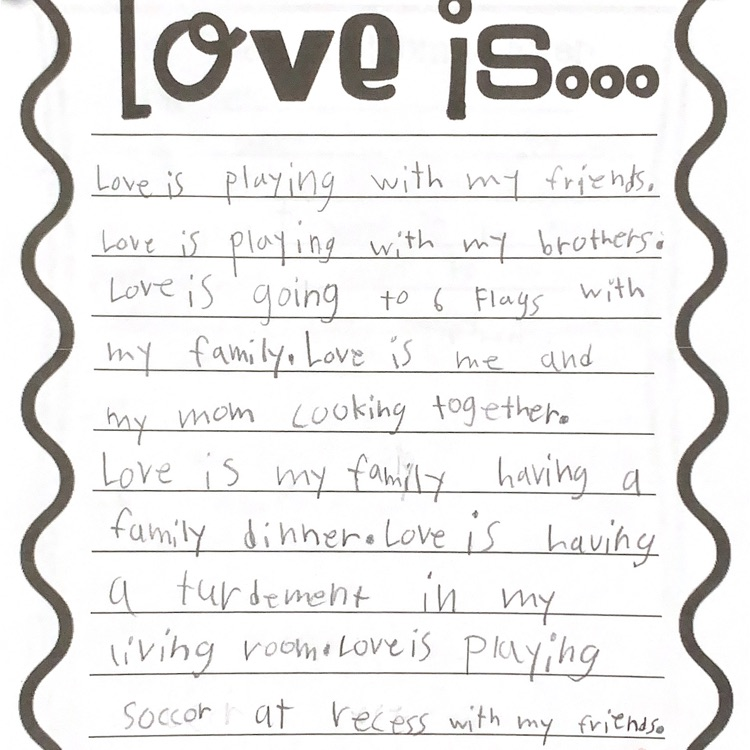 Love is...
Love is playing with my friends.
Love is playing with my brothers.
Love is going to 6 Flags with
my family. Love is me and
my mom cooking together.
Love is my family having a
family dinner. Love is having
a turdement in my
living room. Love is playing
soccor at recess with my friends.